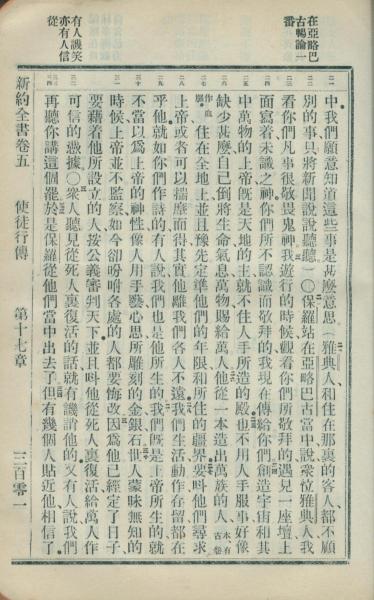 在亞略巴
古暢論一
番
有人譏笑
亦有人信
從
二一
二二
二三
二四
二五
二六
二七
二八
二九
三十
三一
三二
三三
三四
中我們願意知道這些事是甚麼意思（雅典人和住在那裏的客人都不顧
別的事只將新聞說說聽聽）○保羅站在亞略巴古當中說衆位雅典人我
看你們凡事很敬畏鬼神我遊行的時候觀看你們所敬拜的遇見一座壇上
面寫着未識之神你們所不認識而敬拜的我現在傳給你們創造宇宙和其
中萬物的上帝既是天地的主就不住人手所造的殿也不用人手服事好像
缺少甚麼自己倒將生命氣息萬物賜給萬人他從一本造出萬族的人 本有古卷
作血脈 住在全地上並且豫先定準他們的年限和所住的疆界要叫他們尋求
上帝或者可以揣摩而得其實他離我們各人不遠我們生活動作存留都在
乎他就如你們作詩的有人說我們也是他所生的我們既是上帝所生的就
不當以爲上帝的神性像人用手藝心思所雕刻的金銀石世人蒙昧無知的
時候上帝並不監察如今卻吩咐各處的人都要悔改因爲他已經定了日子
要藉着他所設立的人按公義審判天下並且叫他從死人裏復活給萬人作
可信的憑據○衆人聽見從死人裏復活的話就有譏誚他的又有人說我們
再聽你講這個罷於是保羅從他們當中出去了但有幾個人貼近他相信了
新約全書卷五　使徒行傳　第十七章　三百零一